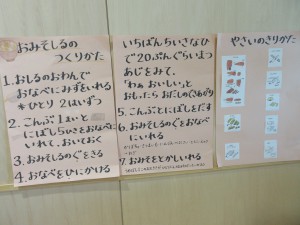 おみそしるの
つくりかた
1.おしるのおわんで
おなべにみずをいれる
*ひとり 2はいずつ
2.こんぶ1まいと
にぼし5ひきをおなべに
いれて、おいておく
3.おみそしるのぐをきる
4.おなべをひにかける
いちばんちいさなひ
で20ぷんぐらいまつ
あじをみて、
「わぁ おいしい」と
おもったら おだしのできあがり
5.こんぶとにぼしだす
6.おみそしるのぐをおなべ
にいれる
7.おみそをとかしいれる
やさいのきりかた